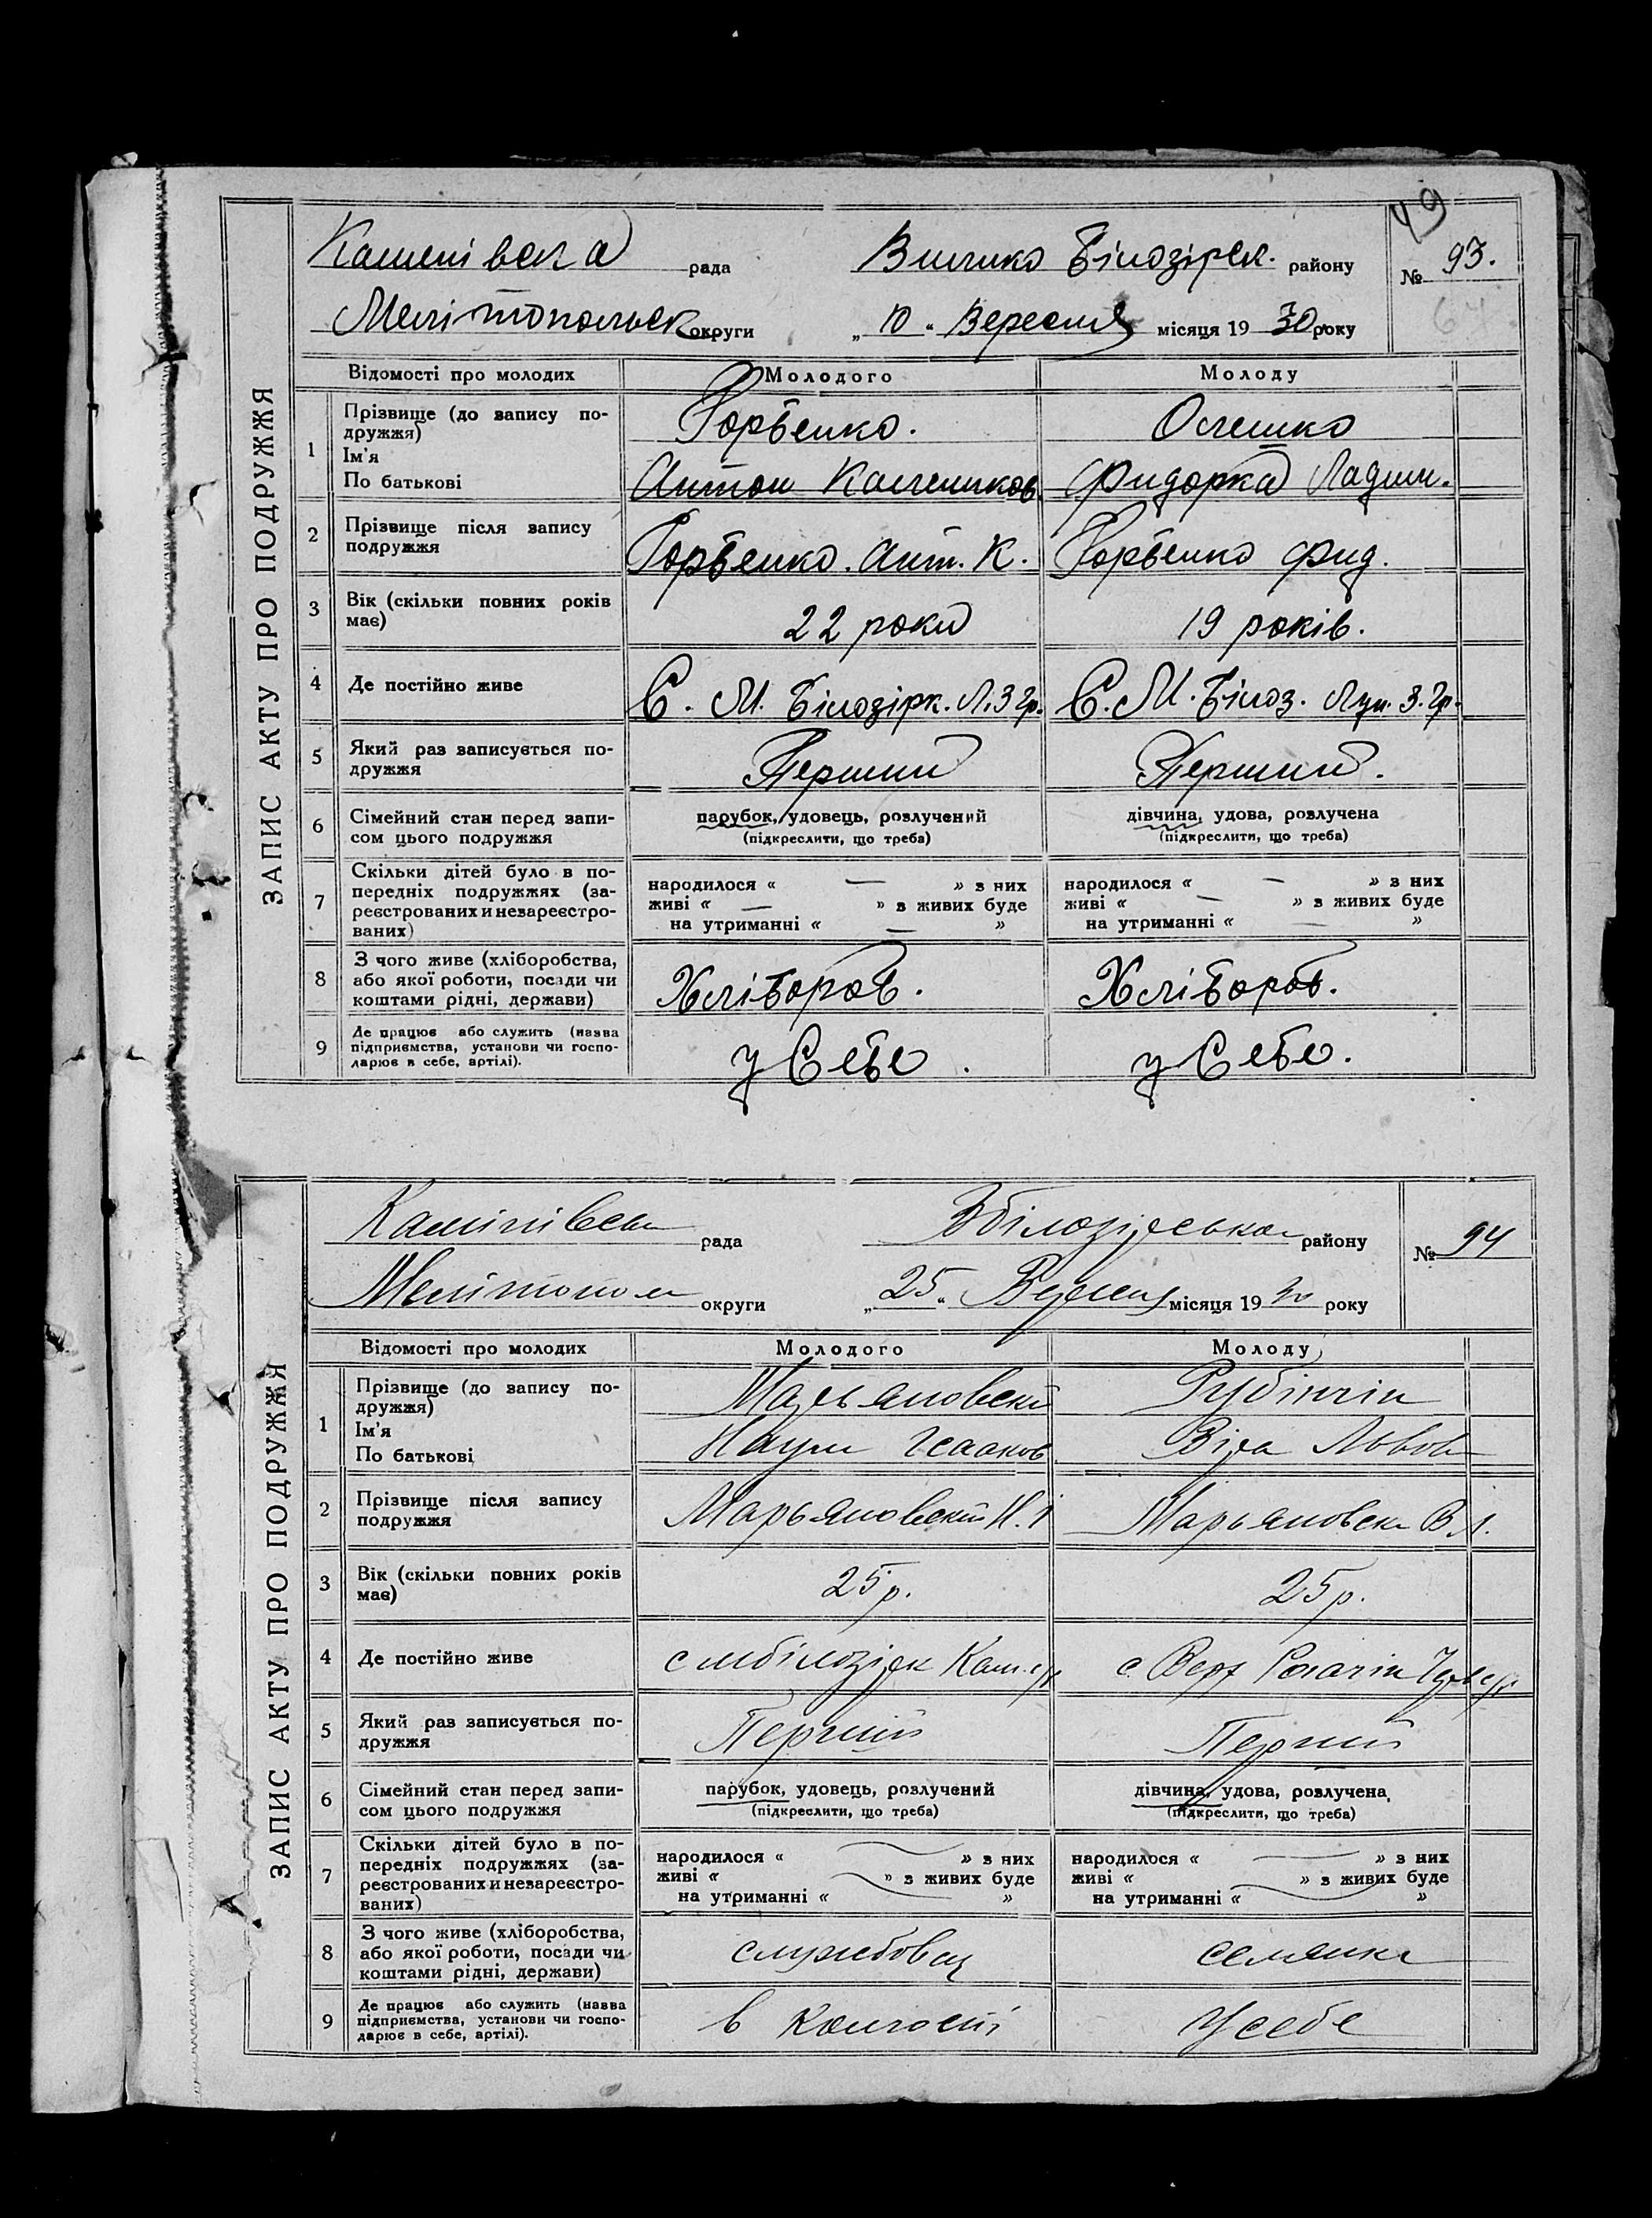 49
Каменівска рада Велико Білозірск. району № 93.
64
Мелітопольск округи „10“ Вересня місяця 1930 року
ЗАПИС АКТУ ПРО ПОДРУЖЖЯ
Відомості про молодих Молодого Молоду
1 Прізвище (до запису по-
дружжя)
Горбенко. Олешко
Ім'я
По батькові
Антон Фидорка
2 Прізвище після запису
подружжя
Горбенко. Ант. К. Горбенко Фид.
3 Вік (скільки повних років
має)
22 роки 19 років.
4 Де постійно живе С. М. Білозірк. Л. 3 Гр. С. М. Білоз. Лун. 3. Гр.
5 Який раз записується по-
дружжя
Перший Перший.
6 Сімейний стан перед запи-
сом цього подружжя
парубок, удовець, розлучений дівчина, удова, розлучена
(підкреслити, що треба) (підкреслити, що треба)
7 Скільки дітей було в по-
передніх подружжях (за-
реєстрованих и незареєстро-
ваних)
народилося « — » з них народилося « — » з них
живі « — » з живих буде живі « — » з живих буде
на утриманні « — » на утриманні « — »
8 З чого живе (хліборобства,
або якої роботи, посади чи
коштами рідні, держави)
Хлібороб. Хлібороб.
9 Де працює або служить (назва
підприємства, установи чи госпо-
дарює в себе, артілі).
у Себе. у Себе.
рада Вбілозірська району № 94
Мелітопол округи „25“ Вересня місяця 1930 року
ЗАПИС АКТУ ПРО ПОДРУЖЖЯ
Відомості про молодих Молодого Молоду
1 Прізвище (до запису по-
дружжя)
Марьяновский Рубінчік
Ім'я
По батькові
Наум Ісааков Віра Львов
2 Прізвище після запису
подружжя
Марьяновский Н. І Марьяновск В. Л.
3 Вік (скільки повних років
має)
25 р. 25 р.
4 Де постійно живе с мбілозірк Кам. с/р с. Верх Рогачік
5 Який раз записується по-
дружжя
Перший Перший
6 Сімейний стан перед запи-
сом цього подружжя
парубок, удовець, розлучений дівчина, удова, розлучена
(підкреслити, що треба) (підкреслити, що треба)
7 Скільки дітей було в по-
передніх подружжях (за-
реєстрованих и незареєстро-
ваних)
народилося « — » з них народилося « — » з них
живі « » з живих буде живі « » з живих буде
на утриманні « — » на утриманні « — »
8 З чого живе (хліборобства,
або якої роботи, посади чи
коштами рідні, держави)
службовец селянка
9 Де працює або служить (назва
підприємства, установи чи госпо-
дарює в себе, артілі).
в У себе